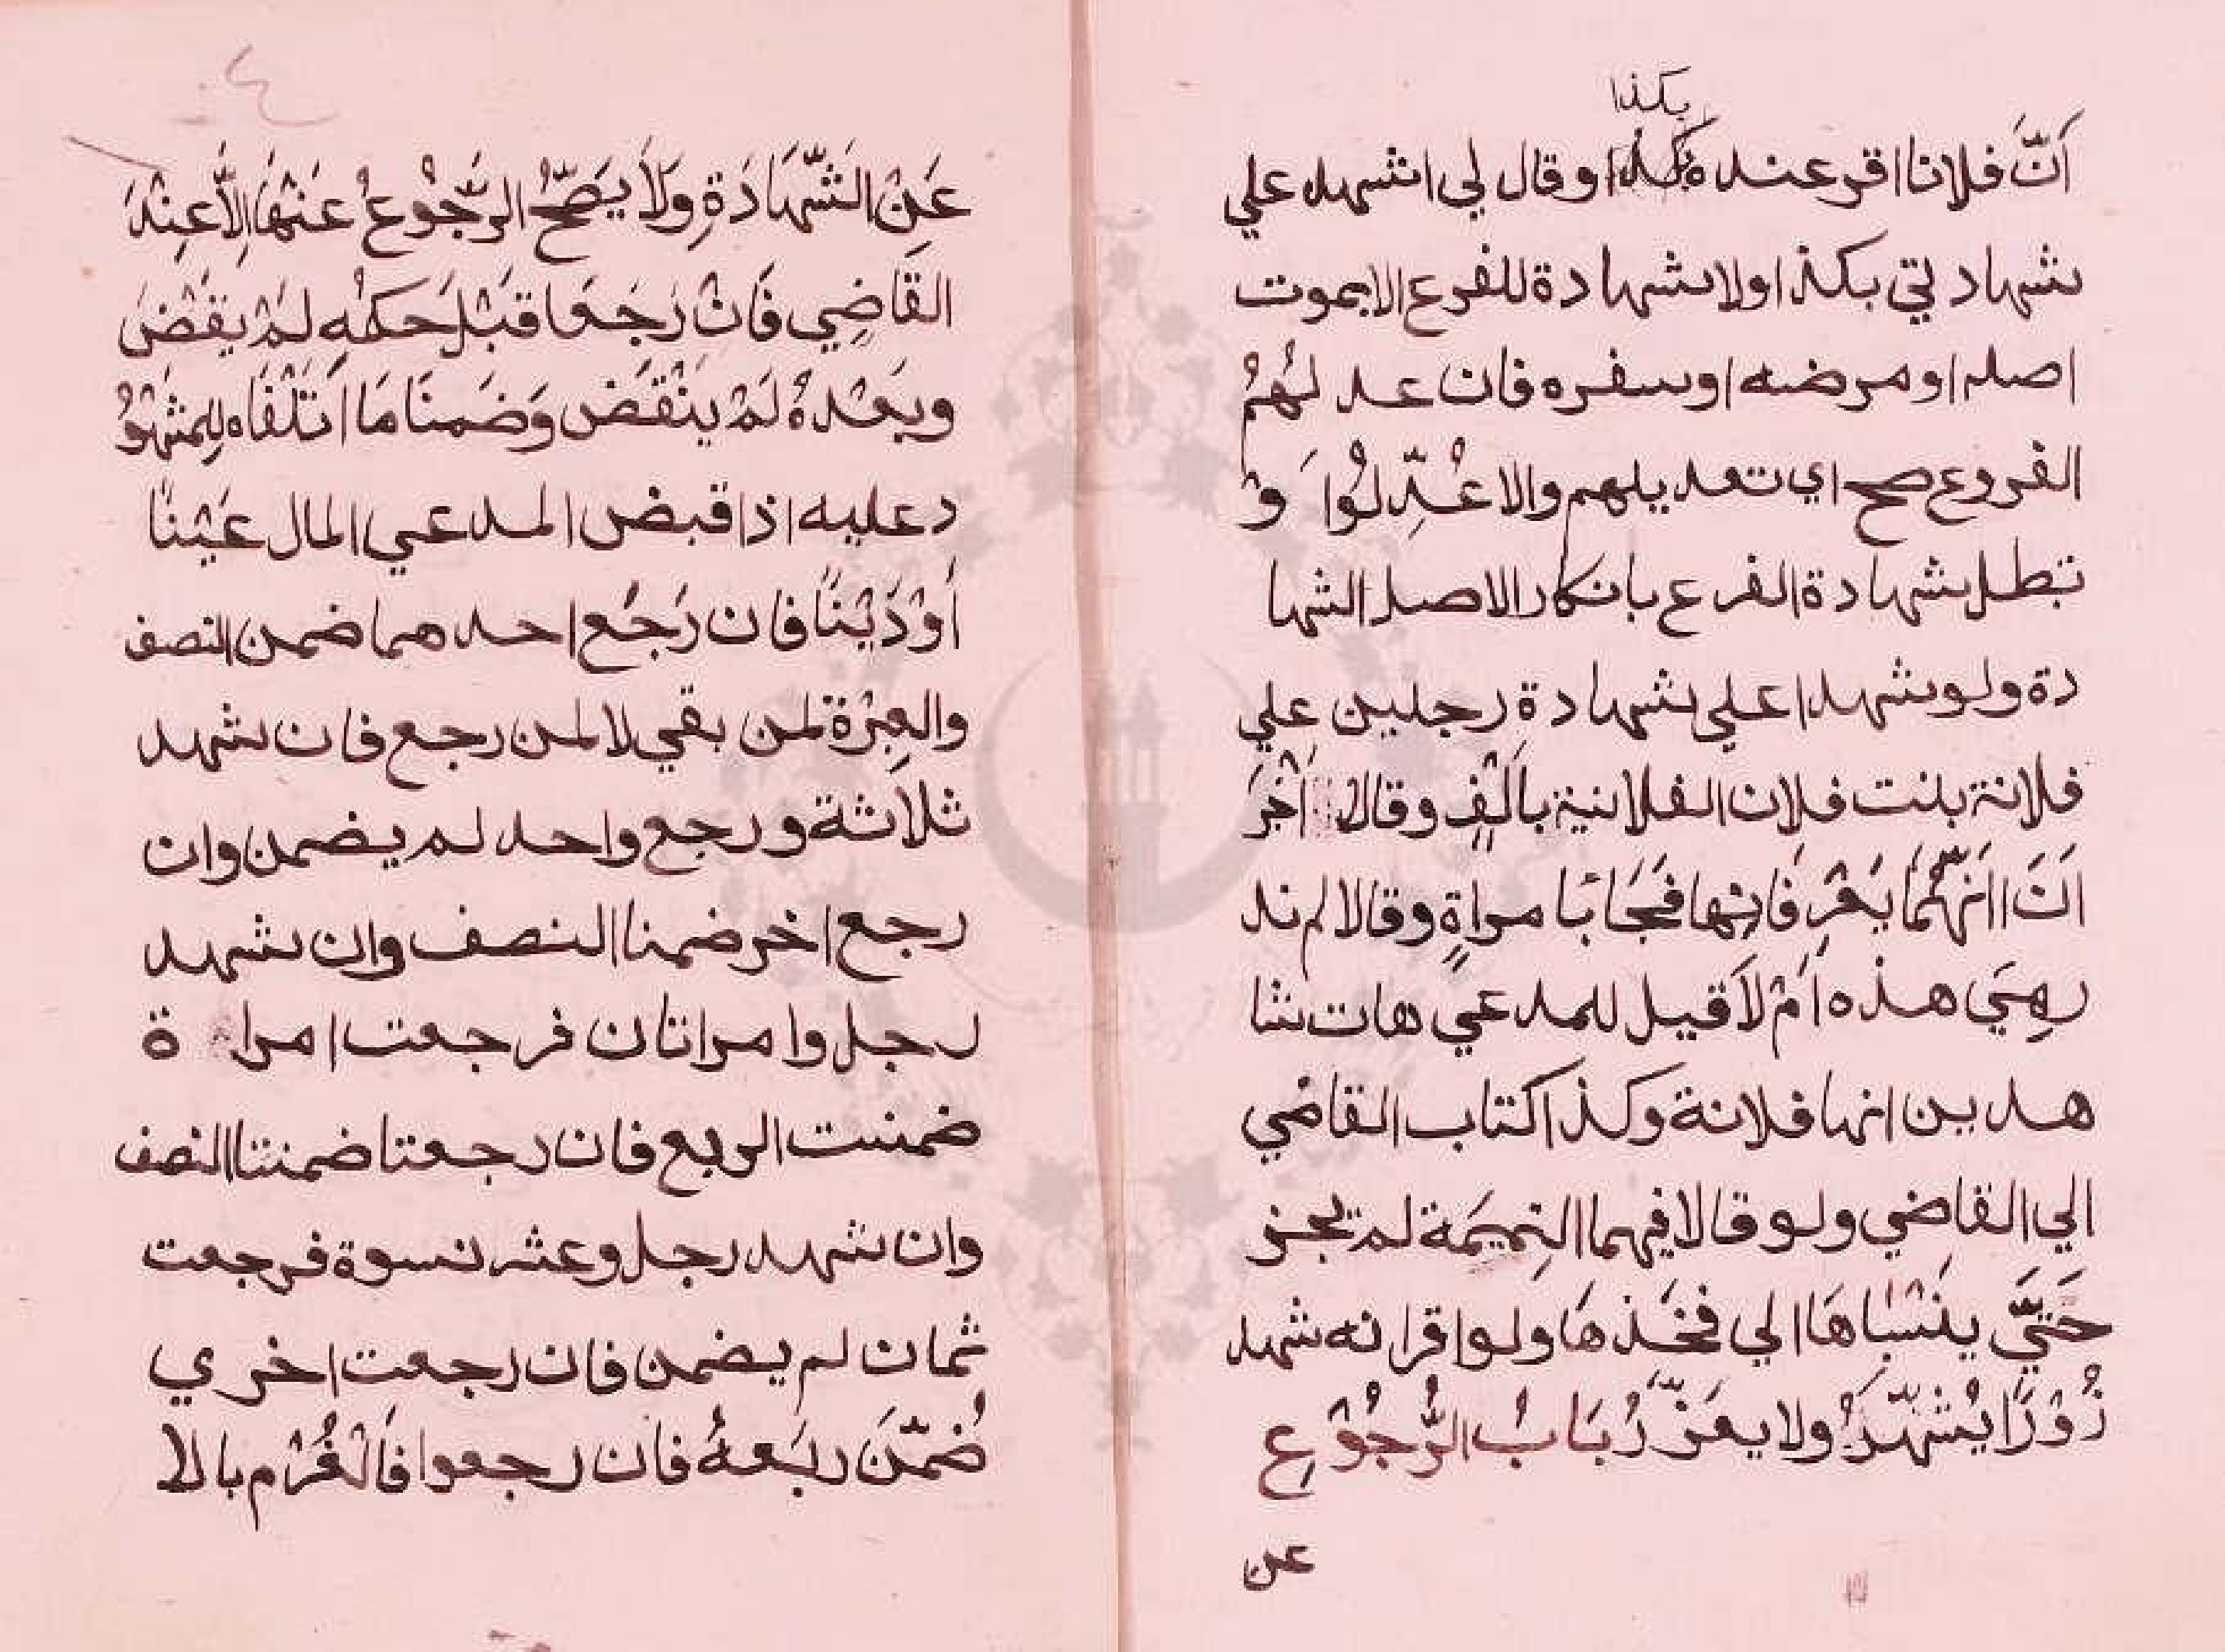 بكذا
اَنَّ فلانا اقر عنده بكذا وقال لي اشهد علي
شهاد تي بكذا ولا شهادة للفرع الا بموت
اصله او مرضه او سفره فان عد لهُمْ
الفروع صح اي تعد يلهم والا عُدِّلُوا وَ
تبطل شهادة الفرع بانكار الاصل الشها
دة ولو شهدا علي شهادة رجلين علي
فلانة بنت فلان الفلانية بِاَلْفٍ وقالا اَخْبَرَ
اَنَا اَنَّهُمَا يَعْرِفَانِها فَجَاءَ بامراةٍ وقالا لم ند
رهِيَ هذه اَمْ لاَ قيل للمدعي هات شا
هدين انها فلانة وكذا كتاب القاضي
الي القاضي ولو قالا فيهما التمِيمَة لم يجز
حَتَّي يَنْسِبَاهَا الي فَخَذهَا ولو اقر انه شهد
زُوْرًا يُشَهَّرُ ولا يعَزَّرُ بَابُ الرُّجُوْعِ
عن
٤٠
عَنِ الشَّهَادَةِ وَلاَ يَصَحُّ الرُّجُوْعُ عَنْهَا اِلاَّ عِنْدَ
القَاضِي فَاِنْ رَجَعَا قَبْلَ حَكمُهِ لَمْ يَقْضَ
وبَعْدهُ لَمْ يَنْقَضْ وَضَمنَا مَا اَتَلْفَاه لِلمَشْهُوْ
د عليه اذا قبض المدعي المال عَيْنًا
اَوْ دَيْنًا فان رَجَع احدهما ضمن النصف
والعِبْرَة لمن بقي لا لمن رجع فان شهد
ثلاثة ورجع واحد لم يضمن وان
رجع اخر ضمنا النصف وان شهد
رجل وامراتان فرجعت امرا ة
ضمنت الربع فان رجعتا ضمنتا النصف
وان شهد رجل وعشر نسوة فرجعت
ثمان لم يضمن فان رجعت اخري
ضُمّنَ ربَعهُ فان رجعوا فَالْغُرْم بالا